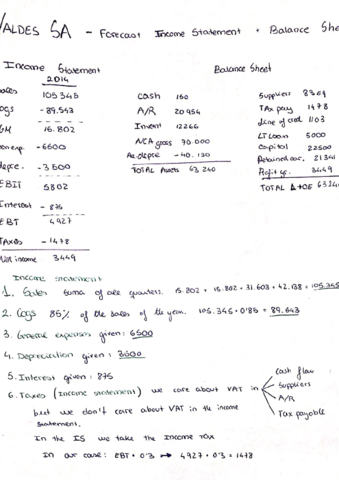 VALDES SA - Forecast Income Statement + Balance She
Income Statement
2014
Sales 105345
Cogs - 89.543
GM 15.802
- 6600
depre. - 3500
EBIT 5802
Interest - 875
EBT 4927
TAXES - 1478
Net income 3449
Balance Sheet
Cash 150
A/R 20954
Invent 12266
NCA gross 70.000
Ac. depre - 40.130
TOTAL Assets 63240
Suppliers
TAX pay 1478
Line of cred 1103
LT Loan 5000
Capital 22500
Retained
Profit 3449
TOTAL
Income statement
1. Sales suma of all quarters. 15.802 + 15.802 + 31.603 + 42.138 = 105.345
2. Cogs 85% of the sales of the year. 105.345 · 0'85 = 89.543
3. General expenses given: 6500
4. Depreciation given: 3500
5. Interest given: 875
6. Taxes (Income statement) we care about VAT in
Cash flow
Suppliers
A/R
Tax payable
but we don't care about VAT in the income
statement.
In the IS we take the Income Tax
In our case: EBT · 0'3 → 4927 · 0'3 = 1478